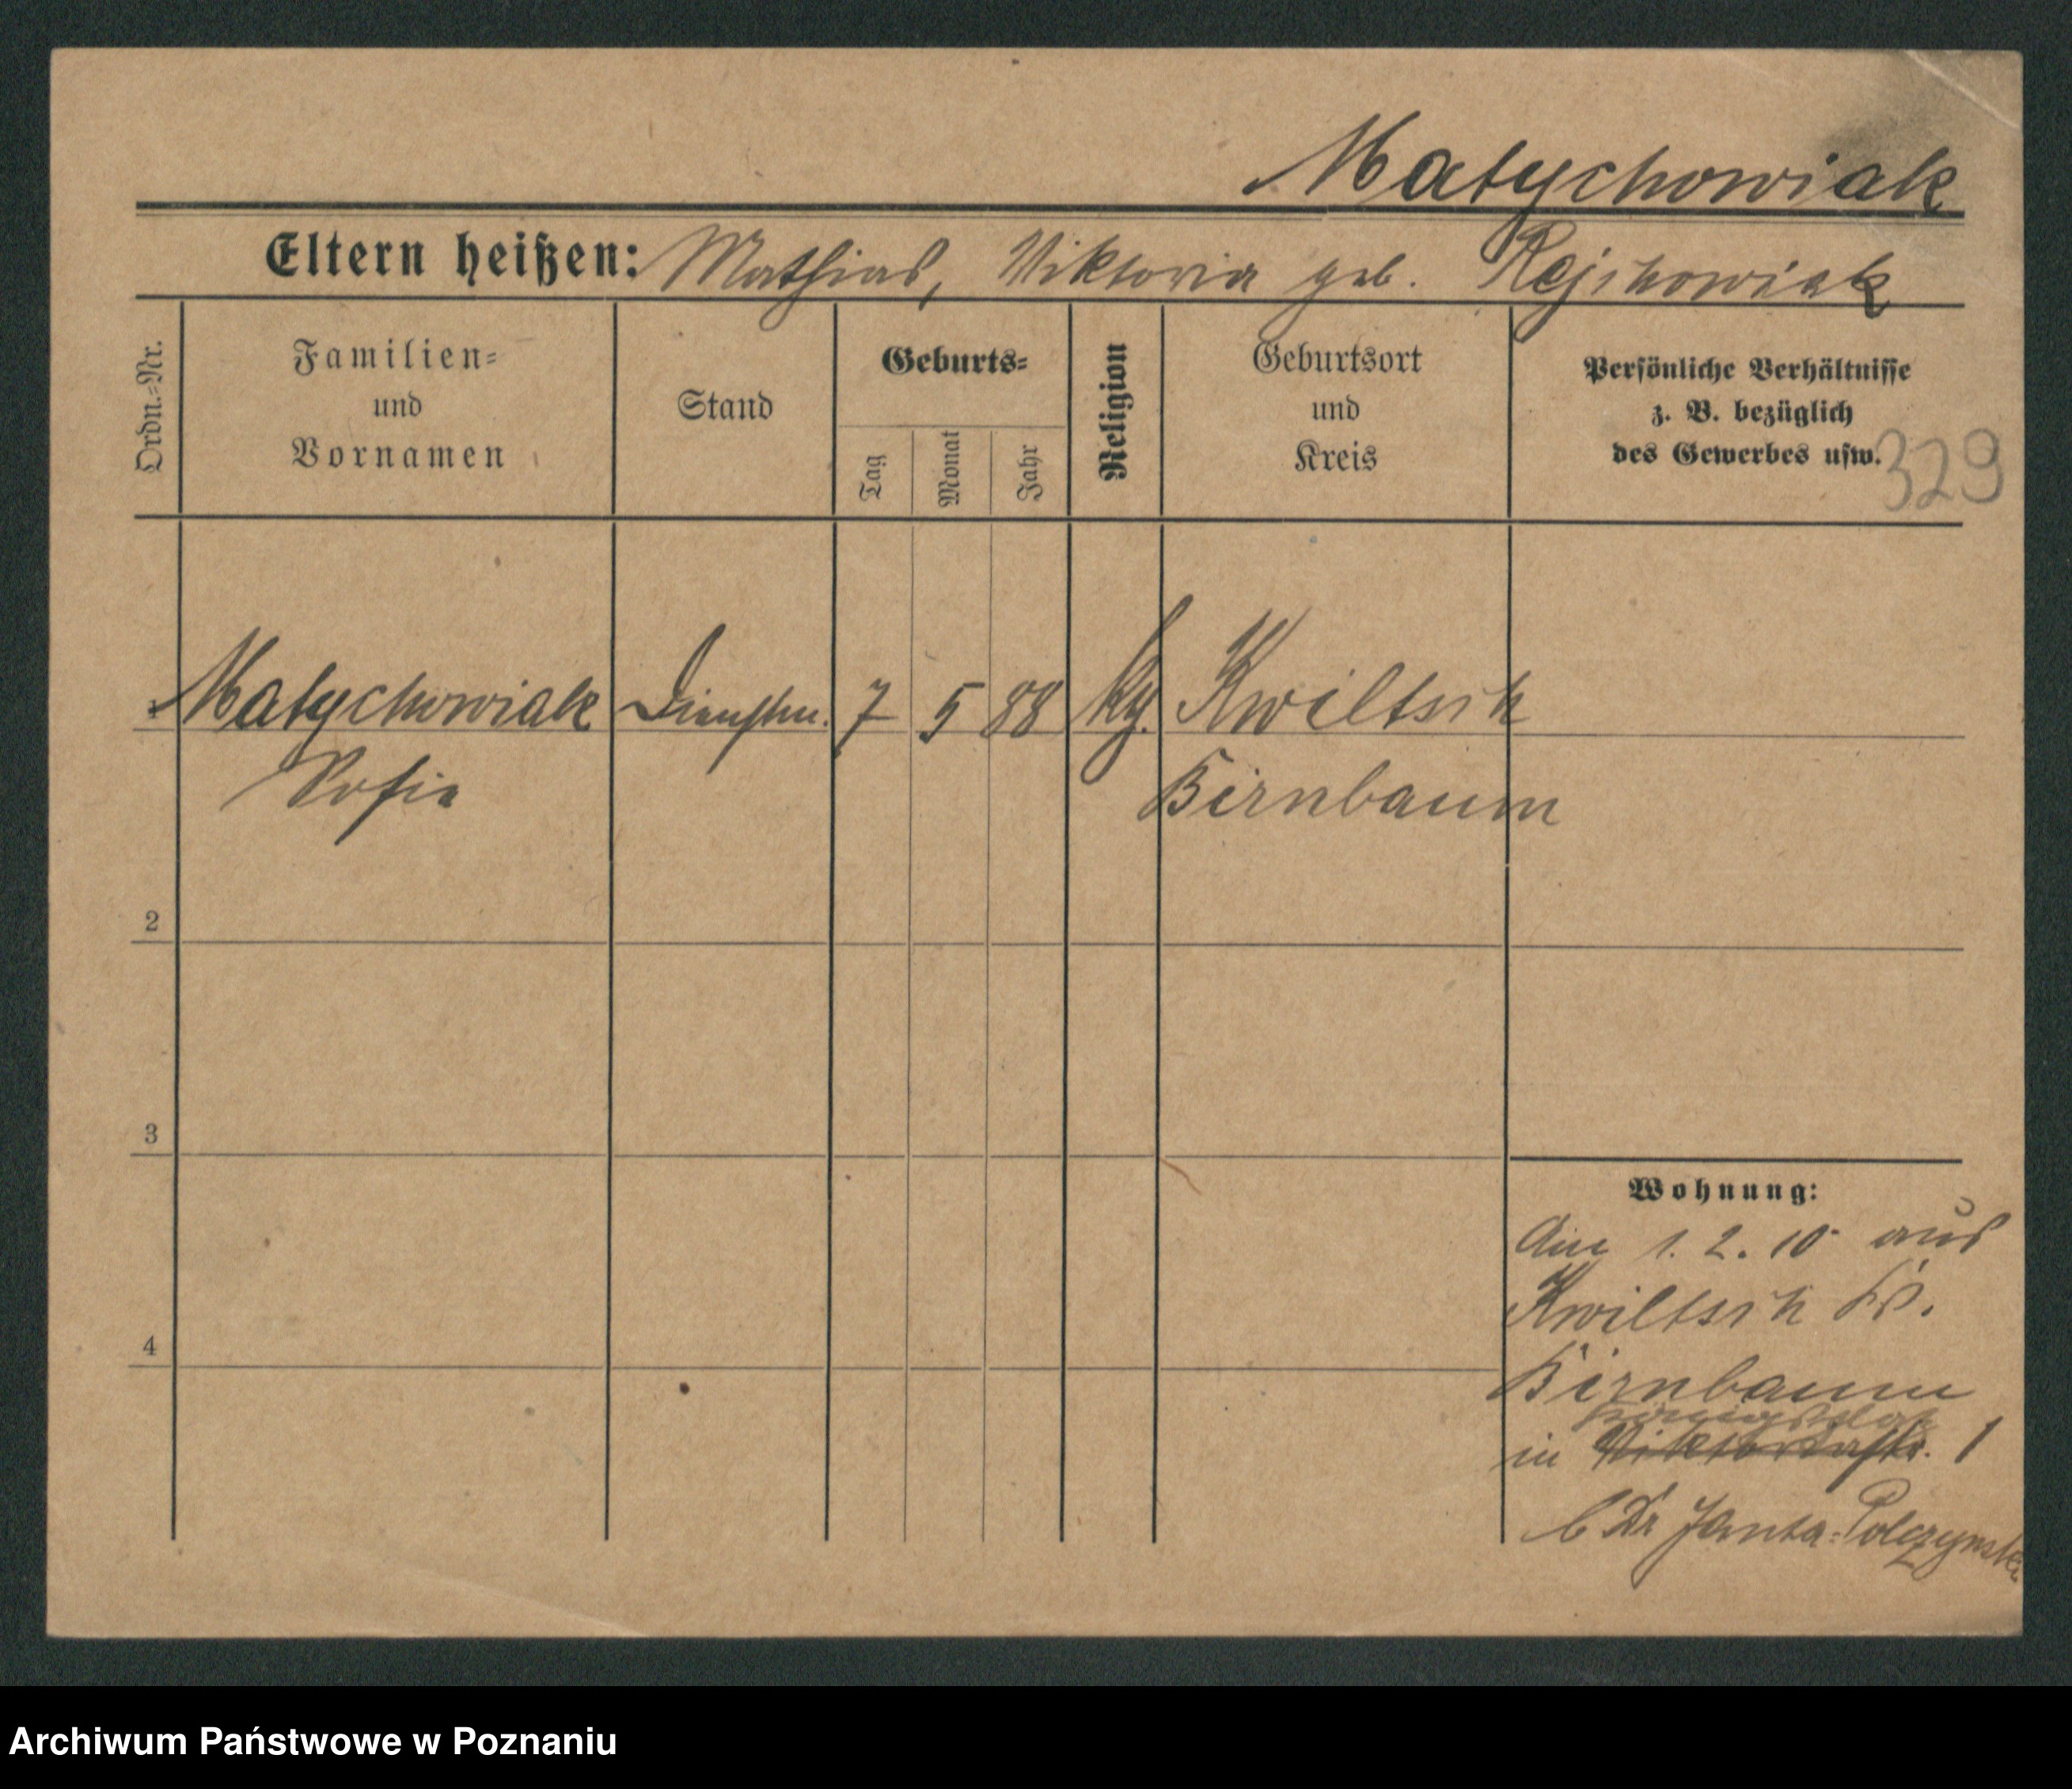 Matychowiak
Eltern heißen: Mathias, Viktoria geb. Rejschowiak
Ordn.=Nr.
Familien=
und
Vornamen
Stand
Geburts=
Tag
Monat
Jahr
Religion
Geburtsort
und
Kreis
Persönliche Verhältnisse
z. B. bezüglich
des Gewerbes usw.
329
1 Matychowiak Dienstm. 7 5 88 kg. Kwiltsch
Sofia Birnbaum
2
3
4
Wohnung:
Am 1. 2. 10 aus
Kwiltsch Kr.
Birnbaum
Königsplatz
in Viktoriastr. 1
b Dr Janta-Polczynski
Archiwum Państwowe w Poznaniu